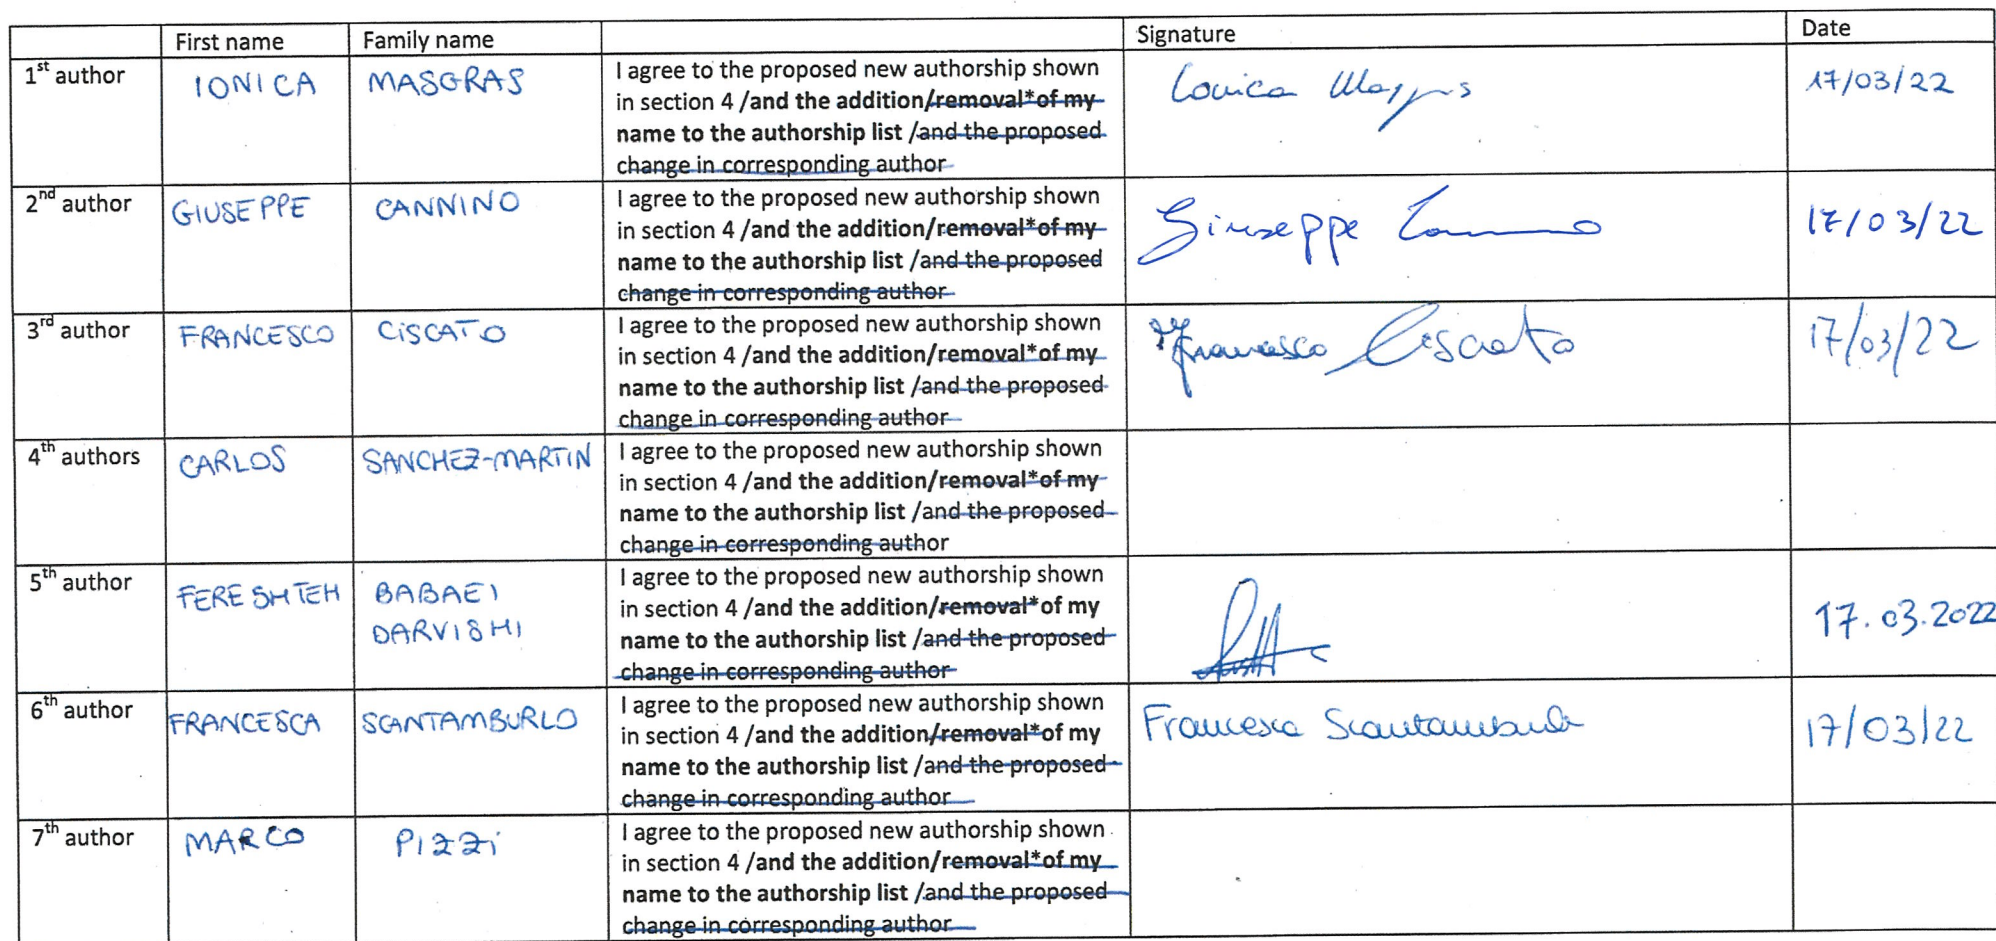 First name Family name Signature Date
1st author IONICA MASGRAS I agree to the proposed new authorship shown Ionica Masgras 17/03/22
in section 4 /and the addition/removal*of my
name to the authorship list /and the proposed
change in corresponding author
2nd author GIUSEPPE CANNINO I agree to the proposed new authorship shown Giuseppe Cannino 17/03/22
in section 4 /and the addition/removal*of my
name to the authorship list /and the proposed
change in corresponding author
3rd author FRANCESCO CISCATO I agree to the proposed new authorship shown Francesco Ciscato 17/03/22
in section 4 /and the addition/removal*of my
name to the authorship list /and the proposed
change in corresponding author
4th authors CARLOS SANCHEZ-MARTIN I agree to the proposed new authorship shown
in section 4 /and the addition/removal*of my
name to the authorship list /and the proposed
change in corresponding author
5th author FERESHTEH BABAEI I agree to the proposed new authorship shown 17.03.2022
DARVISHI in section 4 /and the addition/removal*of my
name to the authorship list /and the proposed
change in corresponding author
6th author FRANCESCA SCANTAMBURLO I agree to the proposed new authorship shown Francesca Scantamburlo 17/03/22
in section 4 /and the addition/removal*of my
name to the authorship list /and the proposed
change in corresponding author
7th author MARCO PIZZI I agree to the proposed new authorship shown
in section 4 /and the addition/removal*of my
name to the authorship list /and the proposed
change in corresponding author